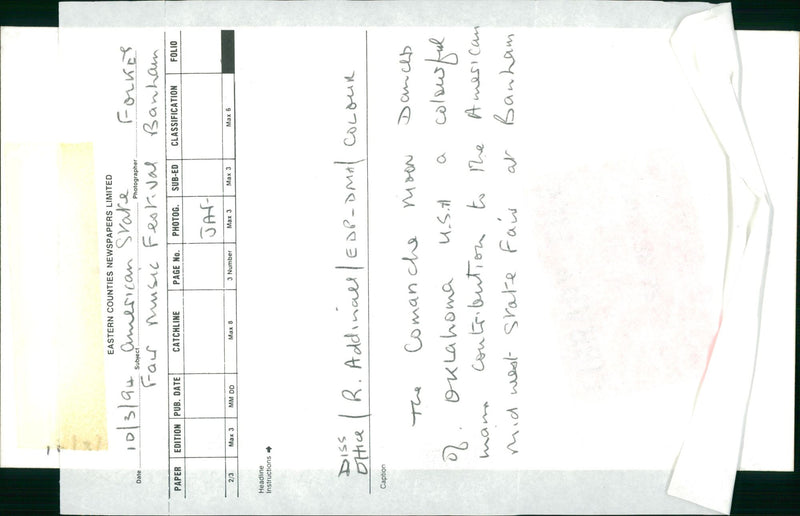 EASTERN COUNTIES NEWSPAPERS LIMITED
Date 10/3/94 Subject American State Photographer Folkes
Fair Music Festival Banham
PAPER EDITION PUB. DATE CATCHLINE PAGE No. PHOTOG. SUB-ED CLASSIFICATION FOLIO
JAF
2/3 Max 3 MM DD Max 8 3 Number Max 3 Max 3 Max 6
Headline
Instructions
DISS
Office / R. Addinall / EDP-DMA / COLOUR
Caption
The Comanche Moon Dancers
of OKLAHOMA U.S.A a colourful
main contribution to the American
Mid west State Fair at Banham